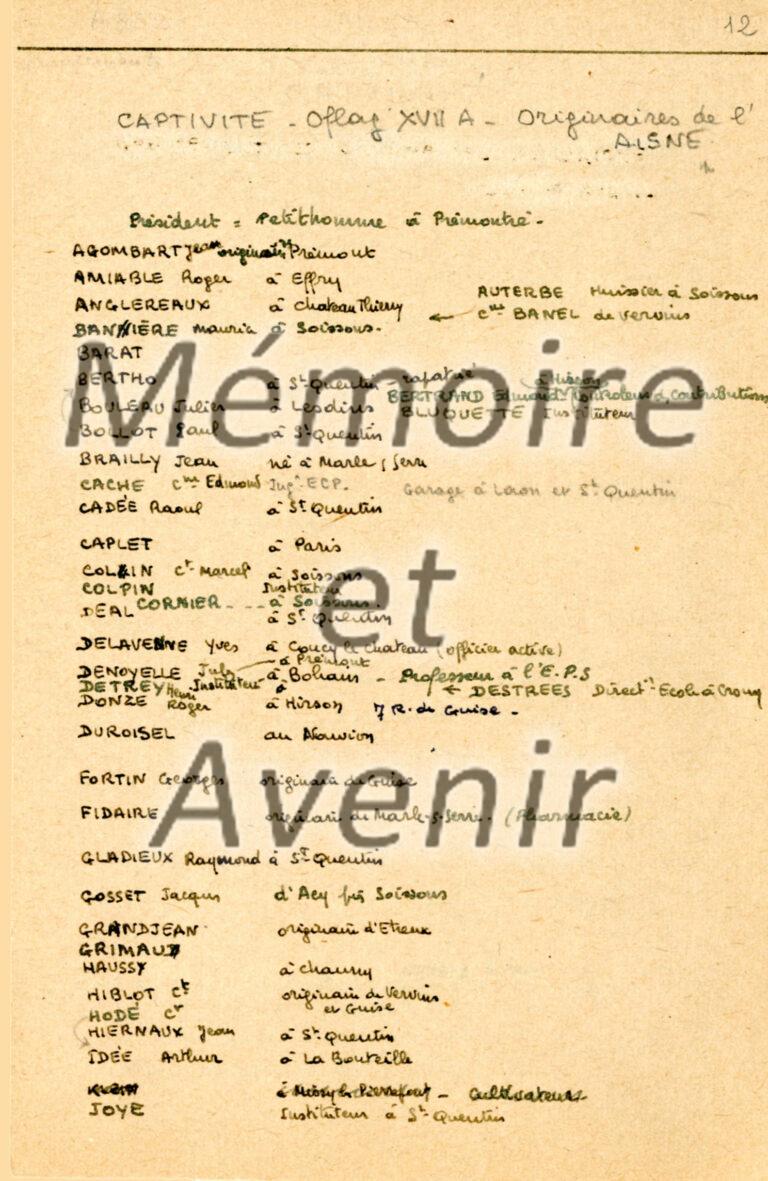 12
CAPTIVITE - Oflag XVII A - Originaires de l'
AISNE
Président = Petithomme à Prémontré -
AGOMBART Jean originaire Prémont
AMIABLE Roger à Effry
AUTERBE Huissier à Soissons
ANGLEREAUX à Chateau Thierry
← Cne BANEL de Vervins
BANNIÈRE Maurice à Soissons.
BARAT
BERTHO à St Quentin - rapatrié
BERTRAND Edmond Controleur d. Contributions
BOULEAU Julien à Lesdins
BLUQUETTE Instituteur
BOLLOT Paul à St Quentin
BRAILLY Jean né à Marle s/ Serre
CACHE Cne Edmond Ingr. ECP. Garage à Laon et St Quentin
CADÉE Raoul à St Quentin
CAPLET à Paris
COLLIN Ct Marcel à Soissons
COLPIN Instituteur
CORNIER - - - à Soissons.
DEAL à St Quentin
DELAVENNE Yves à Coucy le Chateau (officier active)
à Prémont
DENOYELLE Jules à Bohain - Professeur à l'E.P.S
DETREY Henri Instituteur à
← DESTREES Direct. Ecole à Crouy
DONZE Roger à Hirson 7 R. de Guise -
DUROISEL au Nouvion
FORTIN Georges originaire de Guise
FIDAIRE originaire de Marle-s-Serre. (Pharmacie)
GLADIEUX Raymond à St Quentin
GOSSET Jacques d'Acy près Soissons
GRANDJEAN originaire d'Etreux
GRIMAUD
HAUSSY à Chauny
HIBLOT Ct originaire de Vervins
et Guise
HODÉ Ct
HIERNAUX Jean à St Quentin
IDÉE Arthur à La Bouteille
Cultivateurs
JOYE Instituteur à St Quentin
Mémoire
et
Avenir